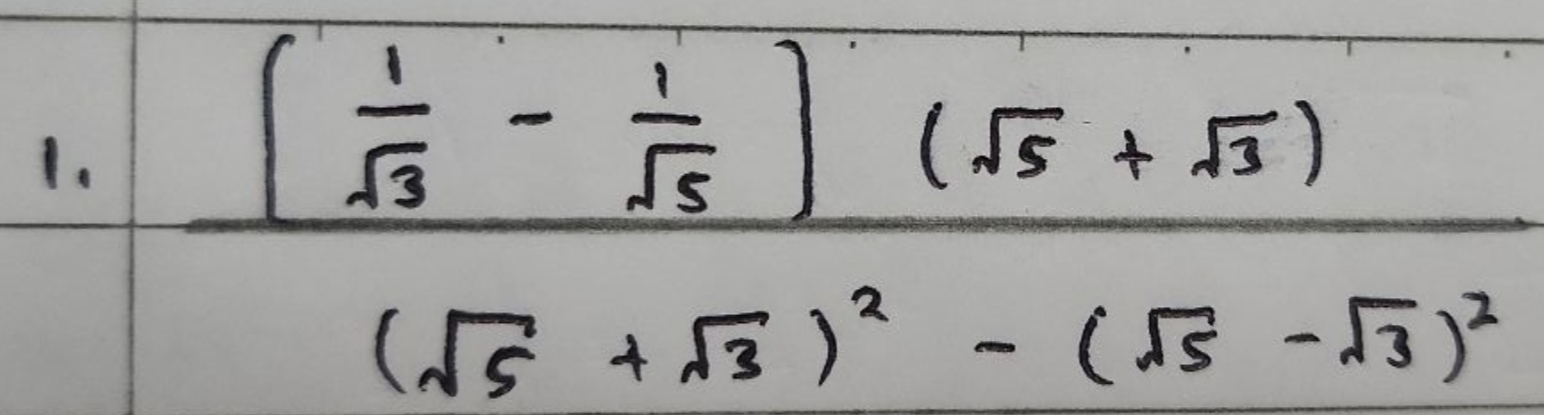 1. [1/√3 - 1/√5] (√5 + √3)
(√5 + √3)² - (√5 - √3)²